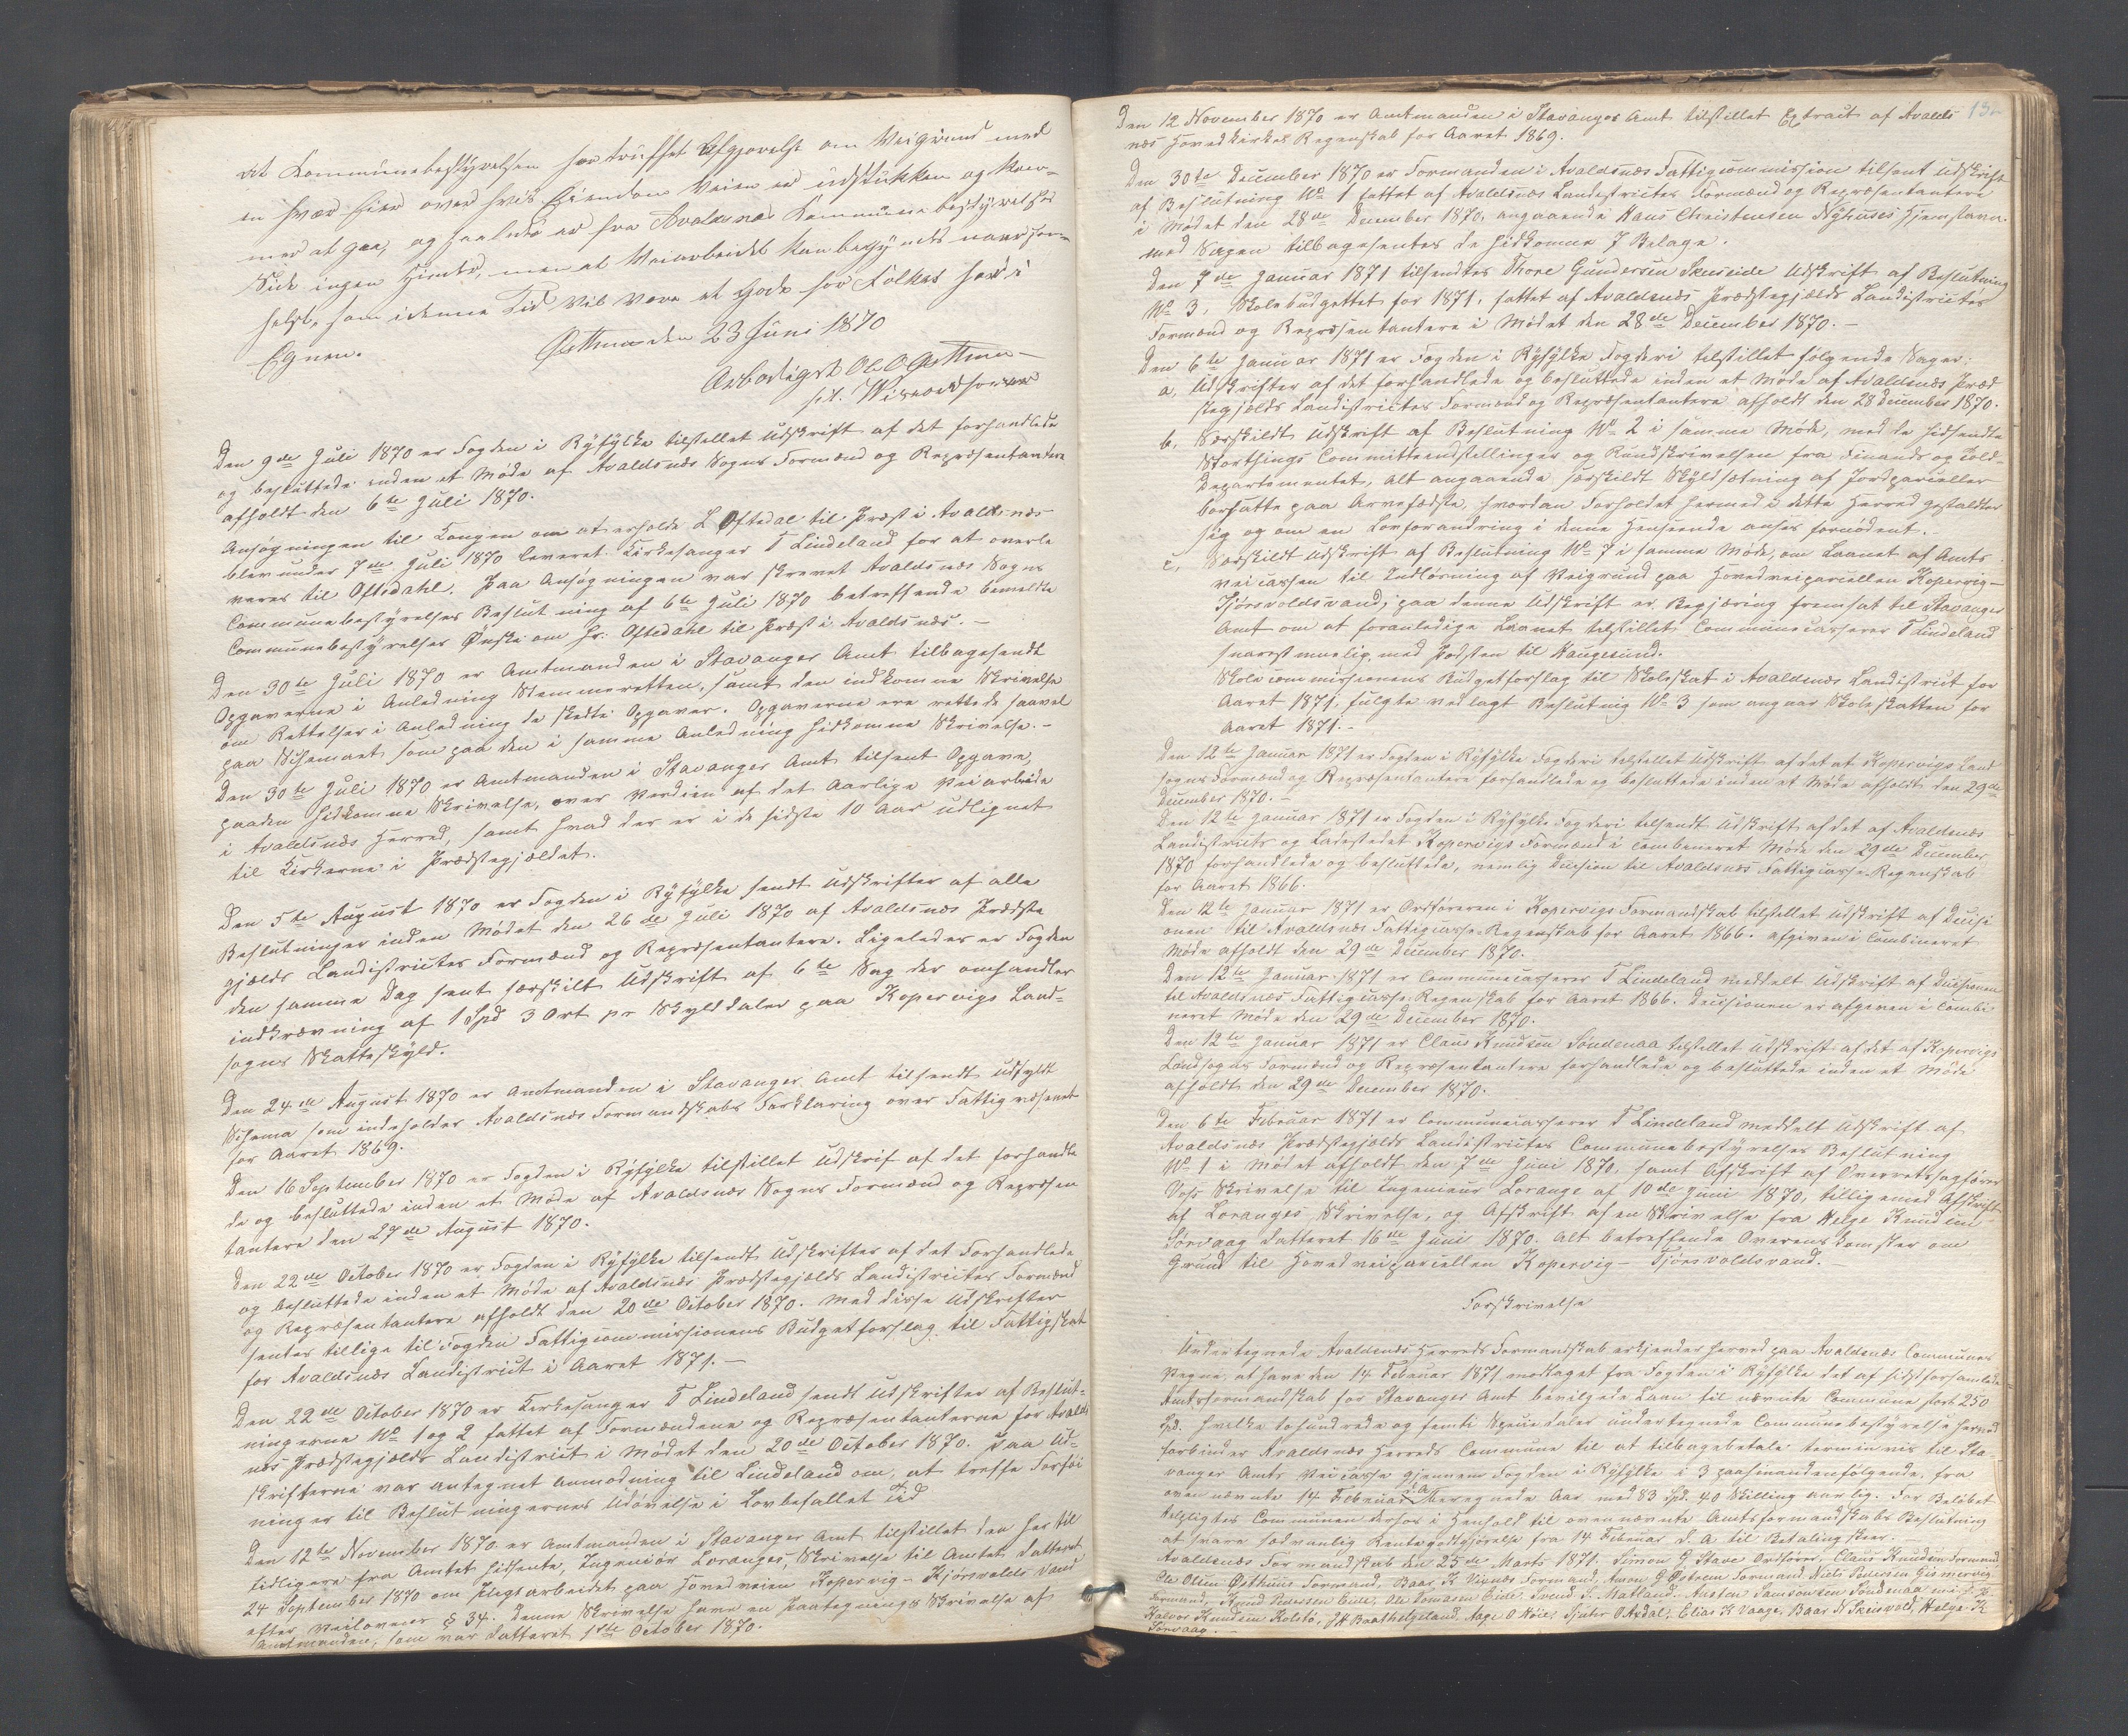 at Kommunebestyrelsen har truffet Afgjørelse om Veigrund med
en hvær Eier over hvis Eiendom Veien er udstukken og kom-
mer at gaa, og saaledes er fra Avaldsnes Kommunebestyrelses
Side ingen Hinder, men at Veiarbeidet kan begyndes naarsom-
helst, som i denne Tid vil være et Gode for Folket her i
Egnen.
den 23 Juni 1870
Ærbødigst
Den 9de Juli 1870 er Fogden i Ryfylke tilstillet Udskrift af det forhandlede
og besluttede inden et Møde af Avaldsnæs Sogns Formænd og Repræsentantere
afholdt den 6te Juli 1870.
Ansøgningen til Kongen om at erholde L Oftedal til Præst i Avaldsnæs
blev under 7de Juli 1870 leveret Kirkesanger T Lindeland for at overle
veres til Oftedahl. Paa Ansøgningen var skrevet Avaldsnæs Sogns
Communebestyrelses Beslutning af 6te Juli 1870 betreffende bemeldte
Communebestyrelses Ønske om Hr. Oftedahl til Præst i Avaldsnæs. -
Den 30te Juli 1870 er Amtmanden i Stavanger Amt tilbagesendt
Opgaverne i Anledning Stemmeretten, samt den indkomne Skrivelse
om Rettelser i Anledning de skedte Opgaver. Opgaverne ere rettede saavel
paa Schemaet som paa den i samme Anledning hidkomne Skrivelse. -
Den 30te Juli 1870 er Amtmanden i Stavanger Amt tilsent Opgave,
paaden hidkomne Skrivelse, over Verdien af det Aarlige Veiarbeide
i Avaldsnæs Herred, samt hvad der er i de sidste 10 Aar udlignet
til Kirkerne i Prædstegjældet.
Den 5te August 1870 er Fogden i Ryfylke sendt Udskrifter af alle
Beslutninger inden Mødet den 26de Juli 1870 af Avaldsnæs Prædste
gjælds Landistrictes Formænd og Repræsentantere. Ligeledes er Fogden
den samme Dag sent særskilt Udskrift af 6te Sag der omhandler
indkrævning af 1 Spd 3 Ort pr Skylddaler paa Kopervigs Land-
sogns Skatteskyld.
Den 24de August 1870 er Amtmanden i Stavanger Amt tilsendt udfyldt
Schema som indeholder Avaldsnæs Formandskabs Forklaring over Fattigvæsenet
for Aaret 1869.
Den 16 September 1870 er Fogden i Ryfylke tilstillet Udskrif af det forhandle
de og besluttede inden et Møde af Avaldsnæs Sogns Formænd og Repræsen
tantere den 27de August 1870.
Den 22de October 1870 er Fogden i Ryfylke tilsendt Udskrifter af det Forhandlede
og besluttede inden et Møde af Avaldsnæs Prædstegjælds Landistrictes Formænd
og Repræsentantere afholdt den 20de October 1870. Med disse Udskrifter
sentes tillige til Fogden Fattigcommissionens Budgetforslag til Fattigskat
for Avaldsnæs Landistrict i Aaret 1871. -
Den 22de October 1870 er Kirkesanger T Lindeland sendt Udskrifter af Beslut-
ningerne No 1 og 2 fattet af Formændene og Repræsentanterne for Avalds
næs Prædstegjælds Landistrict i Mødet den 20de October 1870. Paa Ud-
skrifterne var antegnet Anmodning til Lindeland om, at treffe Forføi
ninger til Beslutningernes Udøvelse i Lovbefallet Tid
Den 12te November 1870 er Amtmanden i Stavanger Amt tilstillet den her til
tidligere fra Amtet hidsente, Ingeniør Loranges, Skrivelse til Amtet datteret
24 September 1870 om Pligtarbeidet paa Hovedveien Kopervig - Kjørsvolds Vand
efter Veilovens § 34. Denne Skrivelse have en Paategnings Skrivelse af
Amtmanden, som var datteret 1ste October 1870.
Den 12 November 1870 er Amtmanden i Stavanger Amt tilstillet Extract af Avalds
næs Hovedkirkes Regenskab for Aaret 1869.
Den 30te December 1870 er Formanden i Avaldsnæs Fattigcommission tilsent Udskrift
af Beslutning No 1 fattet af Avaldsnæs Landistrictes Formænd og Repræsentantere
i Mødet den 28de December 1870, angaaende Hans Christensen Nyhuses Hjemstavn.
med Sagen tilbagesentes de hidkomne 7 Belage.
Den 7de Januar 1871 tilsendtes Thore Gundersen Skeiseide Udskrift af Beslutning
No 3, Skolebudgettet for 1871, fattet af Avaldsnæs Prædstegjælds Landistrictes
Formænd og Repræsentantere i Mødet den 28de December 1870. -
Den 6te Januar 1871 er Fogden i Ryfylke Fogderi tilstillet følgende Sager:
a, Udskrifter af det forhandlede og besluttede inden et Møde af Avaldsnæs Præd
stegjælds Landistrictes Formænd og Repræsentantere afholdt den 28 December 1870.
b, Særskildt Udskrift af Beslutning No 2 i samme Møde, med de hidsendte
Storthings Committeindstellinger og Rundskrivelsen fra Finands og Told-
Departementet, Alt angaaende særskildt Skyldsætning af Jordparceller
bortsatte paa Arvefædste, hvordan Forholdet hermed i dette Herred gestaldter
sig og om en Lovforandring i denne Henseende anses fornødent.
c, Særskildt Udskrift af Beslutning No 7 i samme Møde, om Laanet af Amts
veicassen til Indløsning af Veigrund paa Hovedveiparcellen Kopervig -
Tjørsvoldsvand; paa denne Udskrift er Begjæring fremsat til Stavanger
Amt om at foranledige Laanet tilstillet Communecasserer T Lindeland
snarest muelig, med Posten til Haugesund.
Skolecommissionens Budgetforslag til Skoleskat i Avaldsnæs Landistrict for
Aaret 1871, fulgte vedlagt Beslutnig No 3 som angaar Skoleskatten for
Aaret 1871. -
Den 12te Januar 1871 er Fogden i Ryfylke Fogderi tilstillet Udskrift af det at Kopervigs Land
sogns Formænd og Repræsentantere forhandlede og besluttede inden et Møde afholdt den 29de
December 1870. -
Den 12te Januar 1871 er Fogden i Ryfylke Fogderi tilsendt Udskrift af det af Avaldsnæs
Landistricts og Ladestedet Kopervigs Formænd i Combeneret Møde den 29de December
1870 forhandlede og besluttede, nemlig Decision til Avaldsnæs Fattigcasse-Regenskab
for Aaret 1866.
Den 12te Januar 1871 er Ordføreren i Kopervigs Formandskab tilstillet Udskrift af Decisi
onen til Avaldsnæs Fattigcasse-Regenskab for Aaret 1866. afgiven i Combineret
Møde afholdt den 29de December 1870.
Den 12te Januar 1871 er Communecasserer T Lindeland meddelt Udskrift af Decisionen
til Avaldsnæs Fattigcasse-Regenskab for Aaret 1866. Decisionen er afgeven i Combi
neret Møde den 29de December 1870.
Den 12te Januar 1871 er Claus Knudsen Søndenaa tilstillet Udskrift af det af Kopervigs
Landsogns Formænd og Repræsentantere forhandlede og besluttede inden et Møde
afholdt den 29de December 1870.
Den 6te Februar 1871 er Communecasserer T Lindeland meddelt Udskrift af
Avaldsnæs Prædstegjælds Landistrictes Communebestyrelses Beslutning
No 1 i Mødet afholdt den 7de Juni 1870, samt Afskrift af Overretssagfører
Voss Skrivelse til Ingenieur Lorange af 10de Juni 1870, tilligemed Afskrift
af Loranges Skrivelse, og Afskrift af en Skrivelse fra Helge Knudsen
Sørvaag datteret 16de Juni 1870. Alt betreffende Overenskomster om
Grund til Hovedveiparcellen Kopervig - Tjørsvoldsvand. -
Forskrivelse
Undertegnede Avaldsnæs Herreds Formandskab erkjender herved paa Avaldsnæs Communes
Vegne, at have den 14 Februar 1871 modtaget fra Fogden i Ryfylke det af sidstforsamlede
Amtsformandskab for Stavanger Amt bevilgede Laan til nævnte Commune stort 250
Spd. hvilke tohundrede og femti Speciedaler undertegnede Communebestyrelse herved
forbinder Avaldsnæs Herreds Commune til at tilbagebetale terminvis til Sta-
vanger Amts Veicasse gjennem Fogden i Ryfylke i 3 paahinandenfølgende, fra
ovennævnte 14 Februar d A beregnede Aar med 83 Spd. 40 Skilling aarlig. For Beløbet
tilpligtes Communen derhos i Henhold til ovennævnte Amtsformandskabs Beslutning
at svare sædvanlig Rentegodtgjørelse fra 14 Februar d. A til Betaling skeer.
Avaldsnæs Formandskab den 25de Marts 1871. Simon G Stave Ordfører, Claus Knudsen Formand
Ole Olsen Østhuus Formand, Baar K Viknæs Formand, Amon G Østrem Formand Niels Pedersen Gismervig
Formand, Knud Andersen Eide, Ole Tomasen Eide, Svend S. Matland, Austen Samsonsen Søndenaa
Halvor Knudsen Kolstø, JH Baathelgeland, Aage O Høie, Sjur O Ardal, Elias K Vaage, Baar N Skeisvold, Helge K
Sørvaag. -